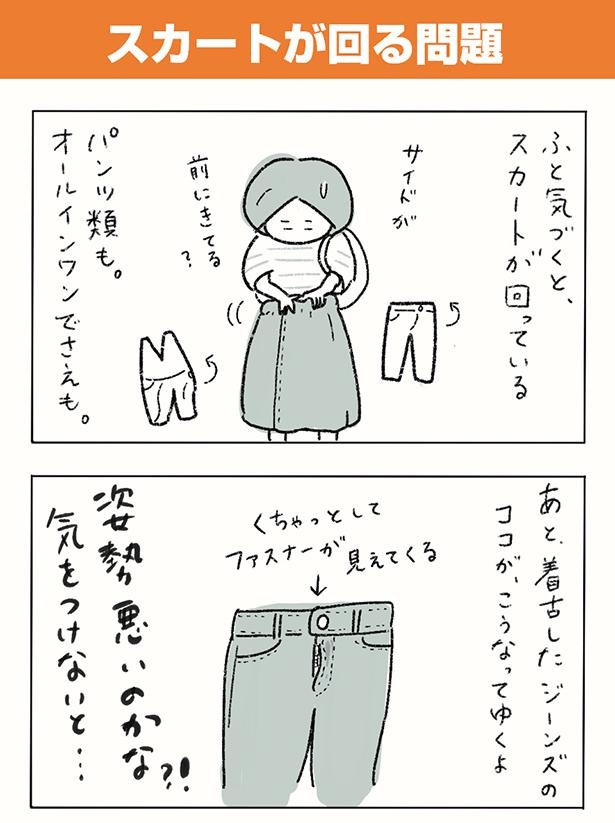 スカートが回る問題
ふと気づくと、
スカートが回っている
サイドが
前にきてる
?
パンツ類も。
オールインワンでさえも。
あと、着古したジーンズの
ココが、こうなってゆくよ
くちゃっとして
ファスナーが見えてくる
姿勢悪いのかな?!
気をつけないと…